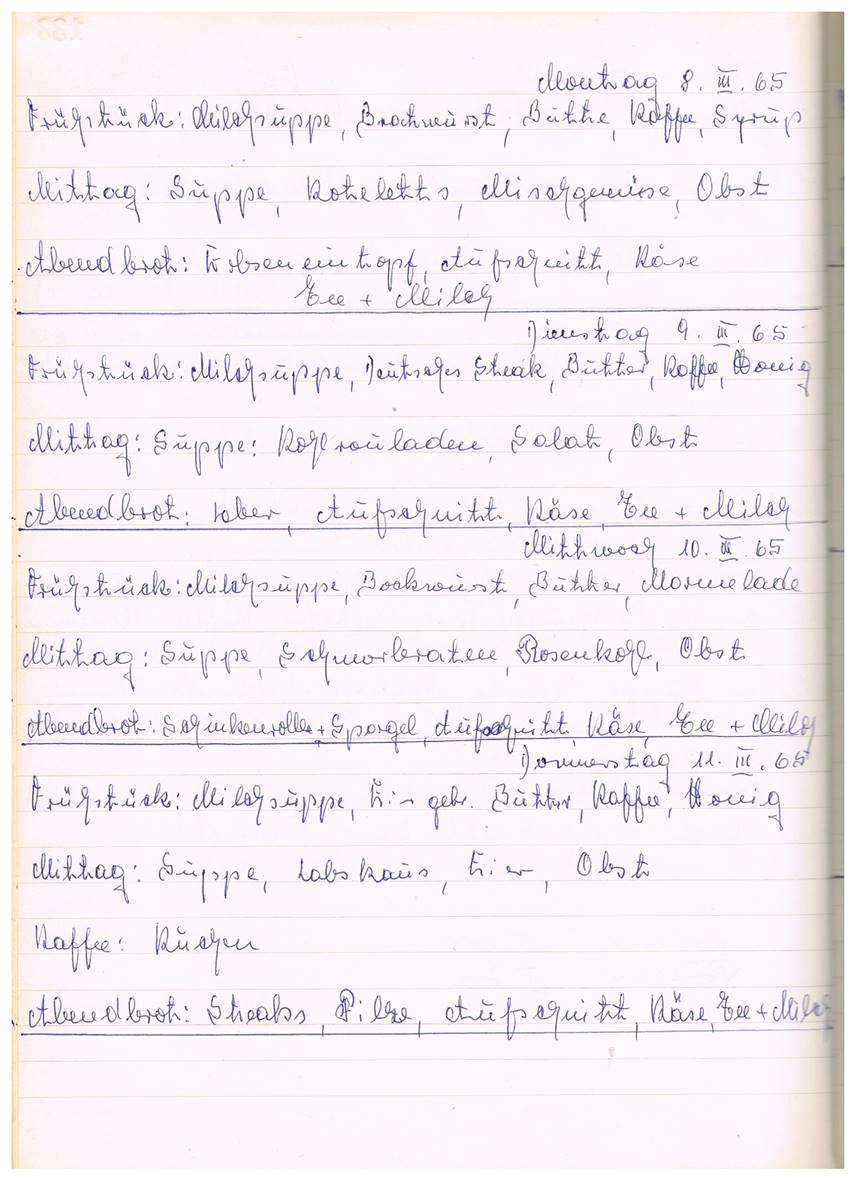 Montag 8. III. 65
Frühstück: Milchsuppe, Brachwurst, Butter, Kaffee, Syrup
Mittag: Suppe, Koteletts, Mischgemüse, Obst
Abendbrot: Erbseneintopf, Aufschnitt, Käse
Tee + Milch
Dienstag 9. III. 65
Frühstück: Milchsuppe, Deutsches Steak, Butter, Kaffee, Honig
Mittag: Suppe: Kohlrouladen, Salat, Obst
Abendbrot: Leber, Aufschnitt, Käse, Tee + Milch
Mittwoch 10. III. 65
Frühstück: Milchsuppe, Bockwurst, Butter, Marmelade
Mittag: Suppe, Schmorbraten, Rosenkohl, Obst
Abendbrot: Schinkenrolle + Spargel, Aufschnitt, Käse, Tee + Milch
Donnerstag 11. III. 65
Frühstück: Milchsuppe, Eier gebr. Butter, Kaffee, Honig
Mittag: Suppe, Labskaus, Eier, Obst
Kaffee: Kuchen
Abendbrot: Steaks, Pilze, Aufschnitt, Käse, Tee + Milch